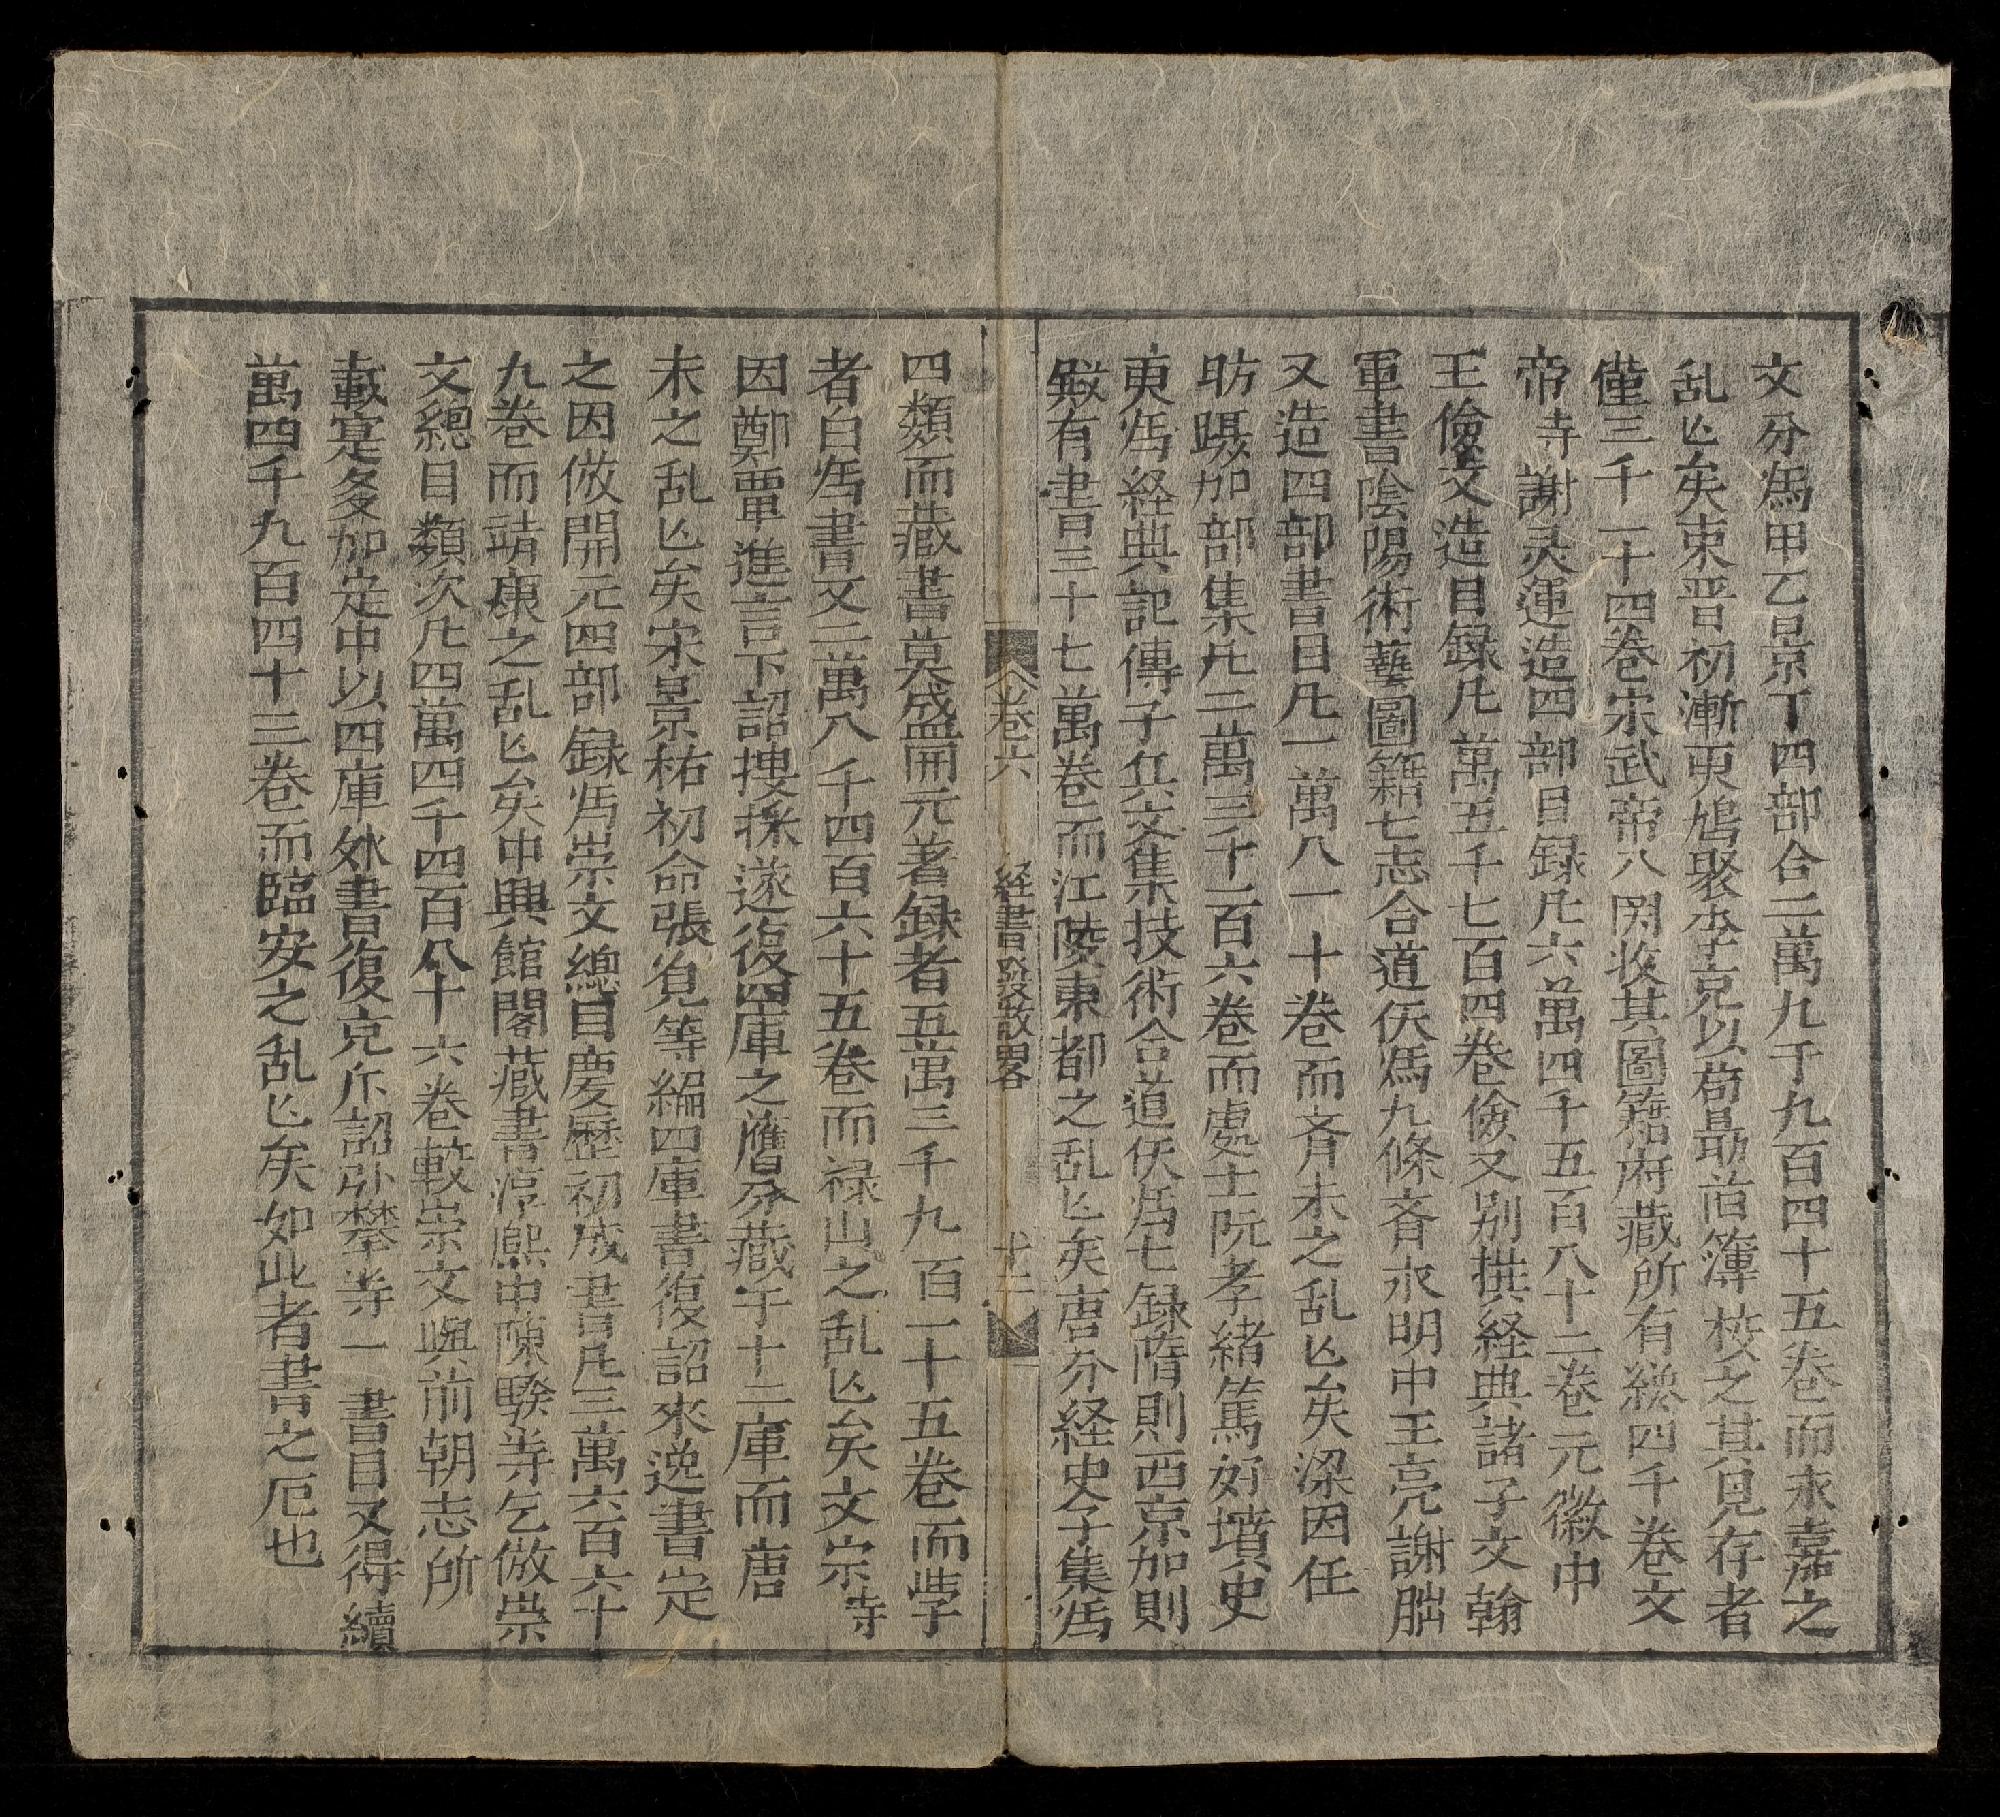 文分為甲乙景丁四部合二萬九千九百四十五巻而永嘉之
乱亾矣東晋初漸更鳩聚李充以荀勗旧簿校之其見存者
僅三千一十四巻宋武帝入関收其圖籍府藏所有縂四千巻文
帝寺謝灵運造四部目録凢六萬四千五百八十二巻元徽中
王儉又造目録凢萬五千七百四巻儉又别撰経典諸子文翰
軍書陰陽術藝圖籍七志合道仸為九條斉永明中王亮謝朏
又造四部書目凢一萬八一十巻而斉末之乱亾矣梁因任
昉躡加部集凢二萬三千一百六巻而處士阮孝緒篤好墳史
更為経典記傳子兵文集技術合道仸為七録隋則西京加則
殿有書三十七萬巻而江陵東都之乱亾矣唐分経史子集為
巻六 経書發散畧 十二
四類而藏書莫盛開元著録者五萬三千九百一十五巻而斈
者自為書又二萬八千四百六十五巻而禄山之乱亾矣文宗寺
因鄭覃進言下詔搜採遂復四庫之舊分藏于十二庫而唐
末之乱亾矣宋景祐初命張覌等編四庫書復詔求逸書定
之因倣開元四部録為崇文總目慶歷初成書凢三萬六百六十
九巻而靖康之乱亾矣中興館閣藏書淳熈中陳騤寺乞倣崇
文緫目類次凢四萬四千四百八十六巻較崇文與前朝志所
載寔多加定中以四庫外書復充斥詔張攀寺一書目又得續
萬四千九百四十三巻而臨安之乱亾矣如此者書之厄也